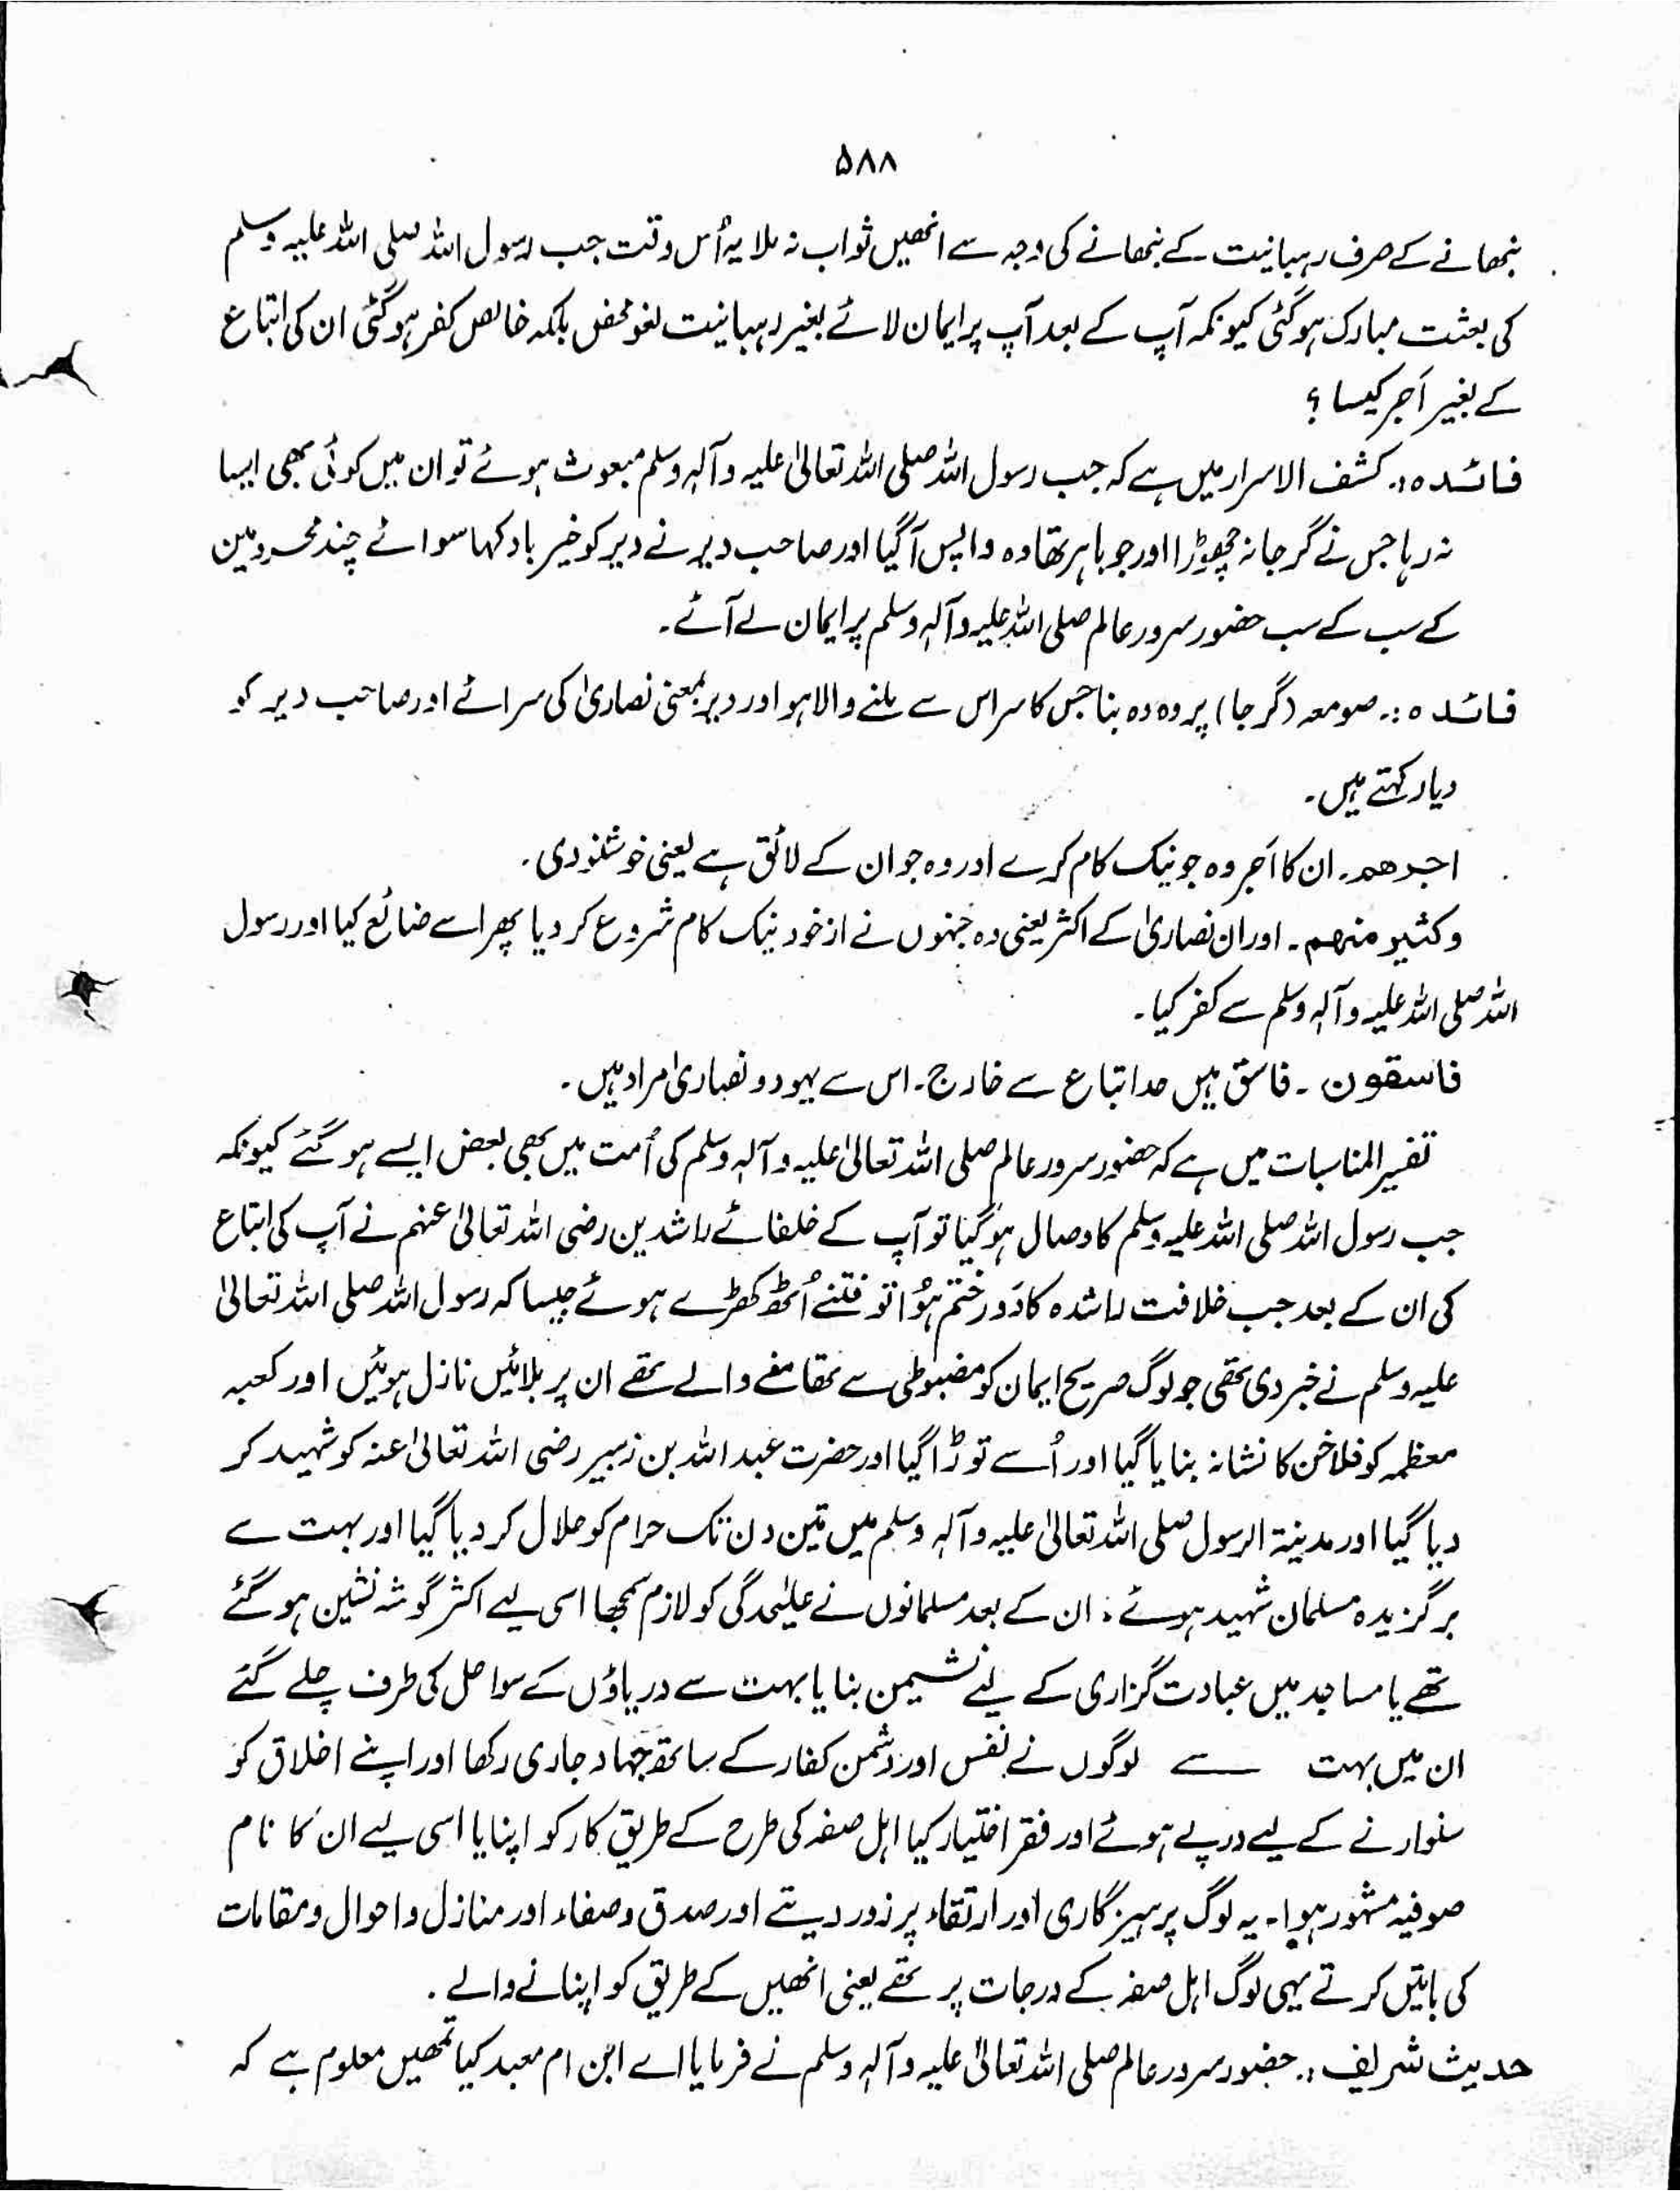 ۵۸۸
نبھانے کے صرف رہبانیت کے نبھانے کی وجہ سے انھیں ثواب نہ ملا یہ اُس وقت جب رسول اللہ صلی اللہ علیہ وسلم
کی بعثت مبارک ہو گئی کیونکہ آپ کے بعد آپ پر ایمان لائے بغیر رہبانیت لغو محض بلکہ خالص کفر ہو گئی ان کی اتباع
کے بغیر اَجر کیسا ؟
فائدہ :۔ کشف الاسرار میں ہے کہ جب رسول اللہ صلی اللہ تعالیٰ علیہ وآلہ وسلم مبعوث ہوئے تو ان میں کوئی بھی ایسا
نہ رہا جس نے گرجا نہ چھوڑا اور جو باہر تھا وہ واپس آگیا اور صاحب دیر نے دیر کو خیر باد کہا سوائے چند محرومین
کے سب کے سب حضور سرور عالم صلی اللہ علیہ وآلہ وسلم پر ایمان لے آئے۔
فائدہ :۔ صومعہ (گرجا) پر وہ وہ بنا جس کا سر اس سے ملنے والا ہو اور دیر بمعنی نصاریٰ کی سرائے اور صاحب دیر کو
دیار کہتے ہیں۔
اجرھم۔ ان کا اَجر وہ جو نیک کام کرے اور وہ جو ان کے لائق ہے یعنی خوشنودی۔
وکثیر منھم۔ اور ان نصاریٰ کے اکثر یعنی وہ جنہوں نے از خود نیک کام شروع کر دیا پھر اسے ضائع کیا اور رسول
اللہ صلی اللہ علیہ وآلہ وسلم سے کفر کیا۔
فاسقون ۔ فاسق ہیں حد اتباع سے خارج۔ اس سے یہود و نصاریٰ مراد ہیں۔
تفسیر المناسبات میں ہے کہ حضور سرور عالم صلی اللہ تعالیٰ علیہ وآلہ وسلم کی اُمت میں بھی بعض ایسے ہو گئے کیونکہ
جب رسول اللہ صلی اللہ علیہ وسلم کا وصال ہو گیا تو آپ کے خلفائے راشدین رضی اللہ تعالیٰ عنہم نے آپ کی اتباع
کی ان کے بعد جب خلافت راشدہ کا دَور ختم ہُوا تو فتنے اُٹھ کھڑے ہوئے جیسا کہ رسول اللہ صلی اللہ تعالیٰ
علیہ وسلم نے خبر دی تھی جو لوگ صریح ایمان کو مضبوطی سے تھامنے والے تھے ان پر بلائیں نازل ہوئیں اور کعبہ
معظمہ کو فلاخن کا نشانہ بنایا گیا اور اُسے توڑا گیا اور حضرت عبد اللہ بن زبیر رضی اللہ تعالیٰ عنہ کو شہید کر
دیا گیا اور مدینۃ الرسول صلی اللہ تعالیٰ علیہ وآلہ وسلم میں تین دن تک حرام کو حلال کر دیا گیا اور بہت سے
برگزیدہ مسلمان شہید ہوئے ، ان کے بعد مسلمانوں نے علیٰحدگی کو لازم سمجھا اسی لیے اکثر گوشہ نشین ہو گئے
تھے یا مساجد میں عبادت گزاری کے لیے نشیمن بنایا بہت سے دریاؤں کے سواحل کی طرف چلے گئے
ان میں بہت سے لوگوں نے نفس اور دشمن کفار کے ساتھ جہاد جاری رکھا اور اپنے اخلاق کو
سنوارنے کے لیے درپے ہوئے اور فقر اختیار کیا اہل صفہ کی طرح کے طریق کار کو اپنایا اسی لیے ان کا نام
صوفیہ مشہور ہوا۔ یہ لوگ پرہیزگاری اور ارتقاء پر زور دیتے اور صدق و صفاء اور منازل و احوال و مقامات
کی باتیں کرتے یہی لوگ اہل صفہ کے درجات پر تھے یعنی انھیں کے طریق کو اپنانے والے ۔
حدیث شریف :۔ حضور سرور عالم صلی اللہ تعالیٰ علیہ وآلہ وسلم نے فرمایا اے ابن ام معبد کیا تمھیں معلوم ہے کہ